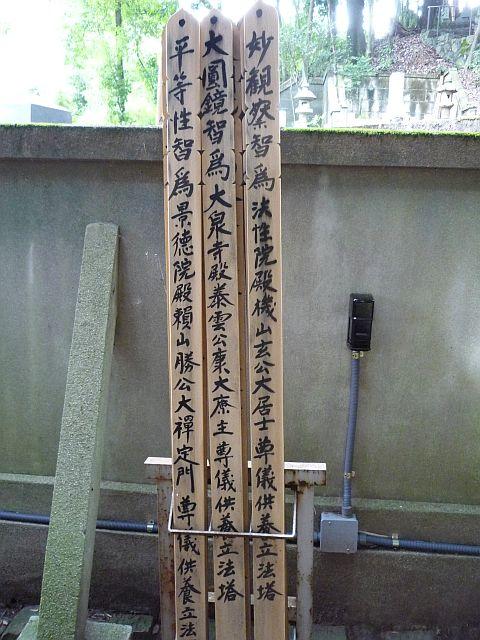 妙観察智為法性院殿機山玄公大居士尊儀供養立法塔
大圓鏡智為大泉寺殿泰雲公康大庶主尊儀供养立法塔
平等性智為景德院殿頼山勝公大禪定門尊儀供養立法